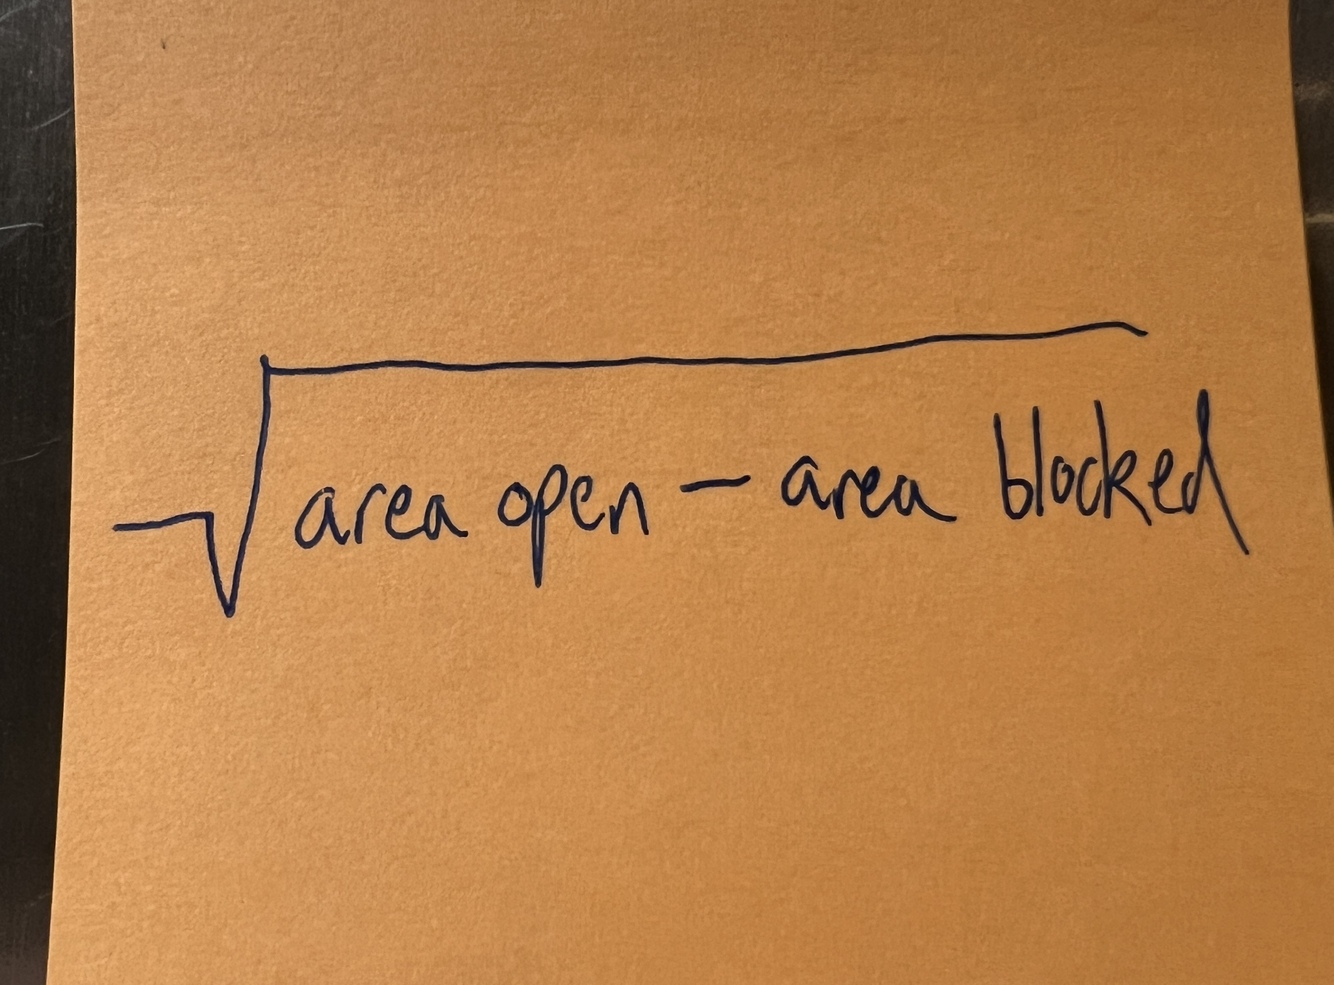 √area open - area blocked